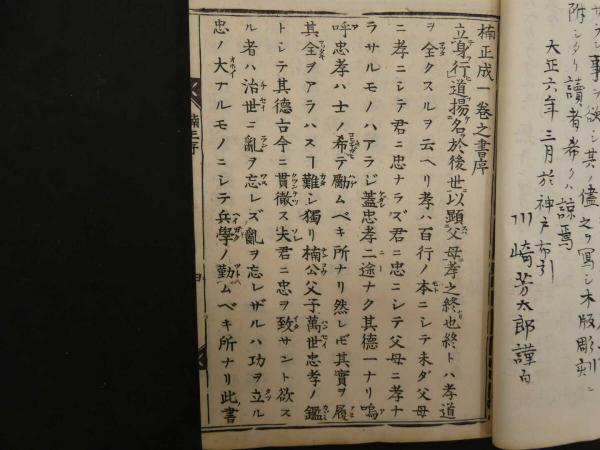 サラン事ヲ欲シ其ノ儘之ヲ寫シ木版彫刻ニ
附シタリ讀者希クハ諒焉
大正六年三月於神戸布引
川崎芳太郎謹白
楠正成一卷之書序
立身行道揚名於後世以顕父母孝之終也終トハ孝道
ヲ全クスルヲ云ヘリ孝ハ百行ノ本ニシテ未ダ父母
ニ孝ニシテ君ニ忠ナラズ君ニ忠ニシテ父母ニ孝ナ
ラサルモノハアラジ蓋忠孝二途ナク其德一ナリ嗚
呼忠孝ハ士ノ希テ勵ムベキ所ナリ然レ𪜈其實ヲ履
其全ヲアラハスヿ難シ獨リ楠公父子萬世忠孝ノ鑑
トシテ其德古今ニ貫徹ス夫君ニ忠ヲ致サント欲ス
ル者ハ治世ニ亂ヲ忘レズ亂ヲ忘レザルハ功ヲ立ル
忠ノ大ナルモノニシテ兵學ノ勤ムベキ所ナリ此書
楠正序